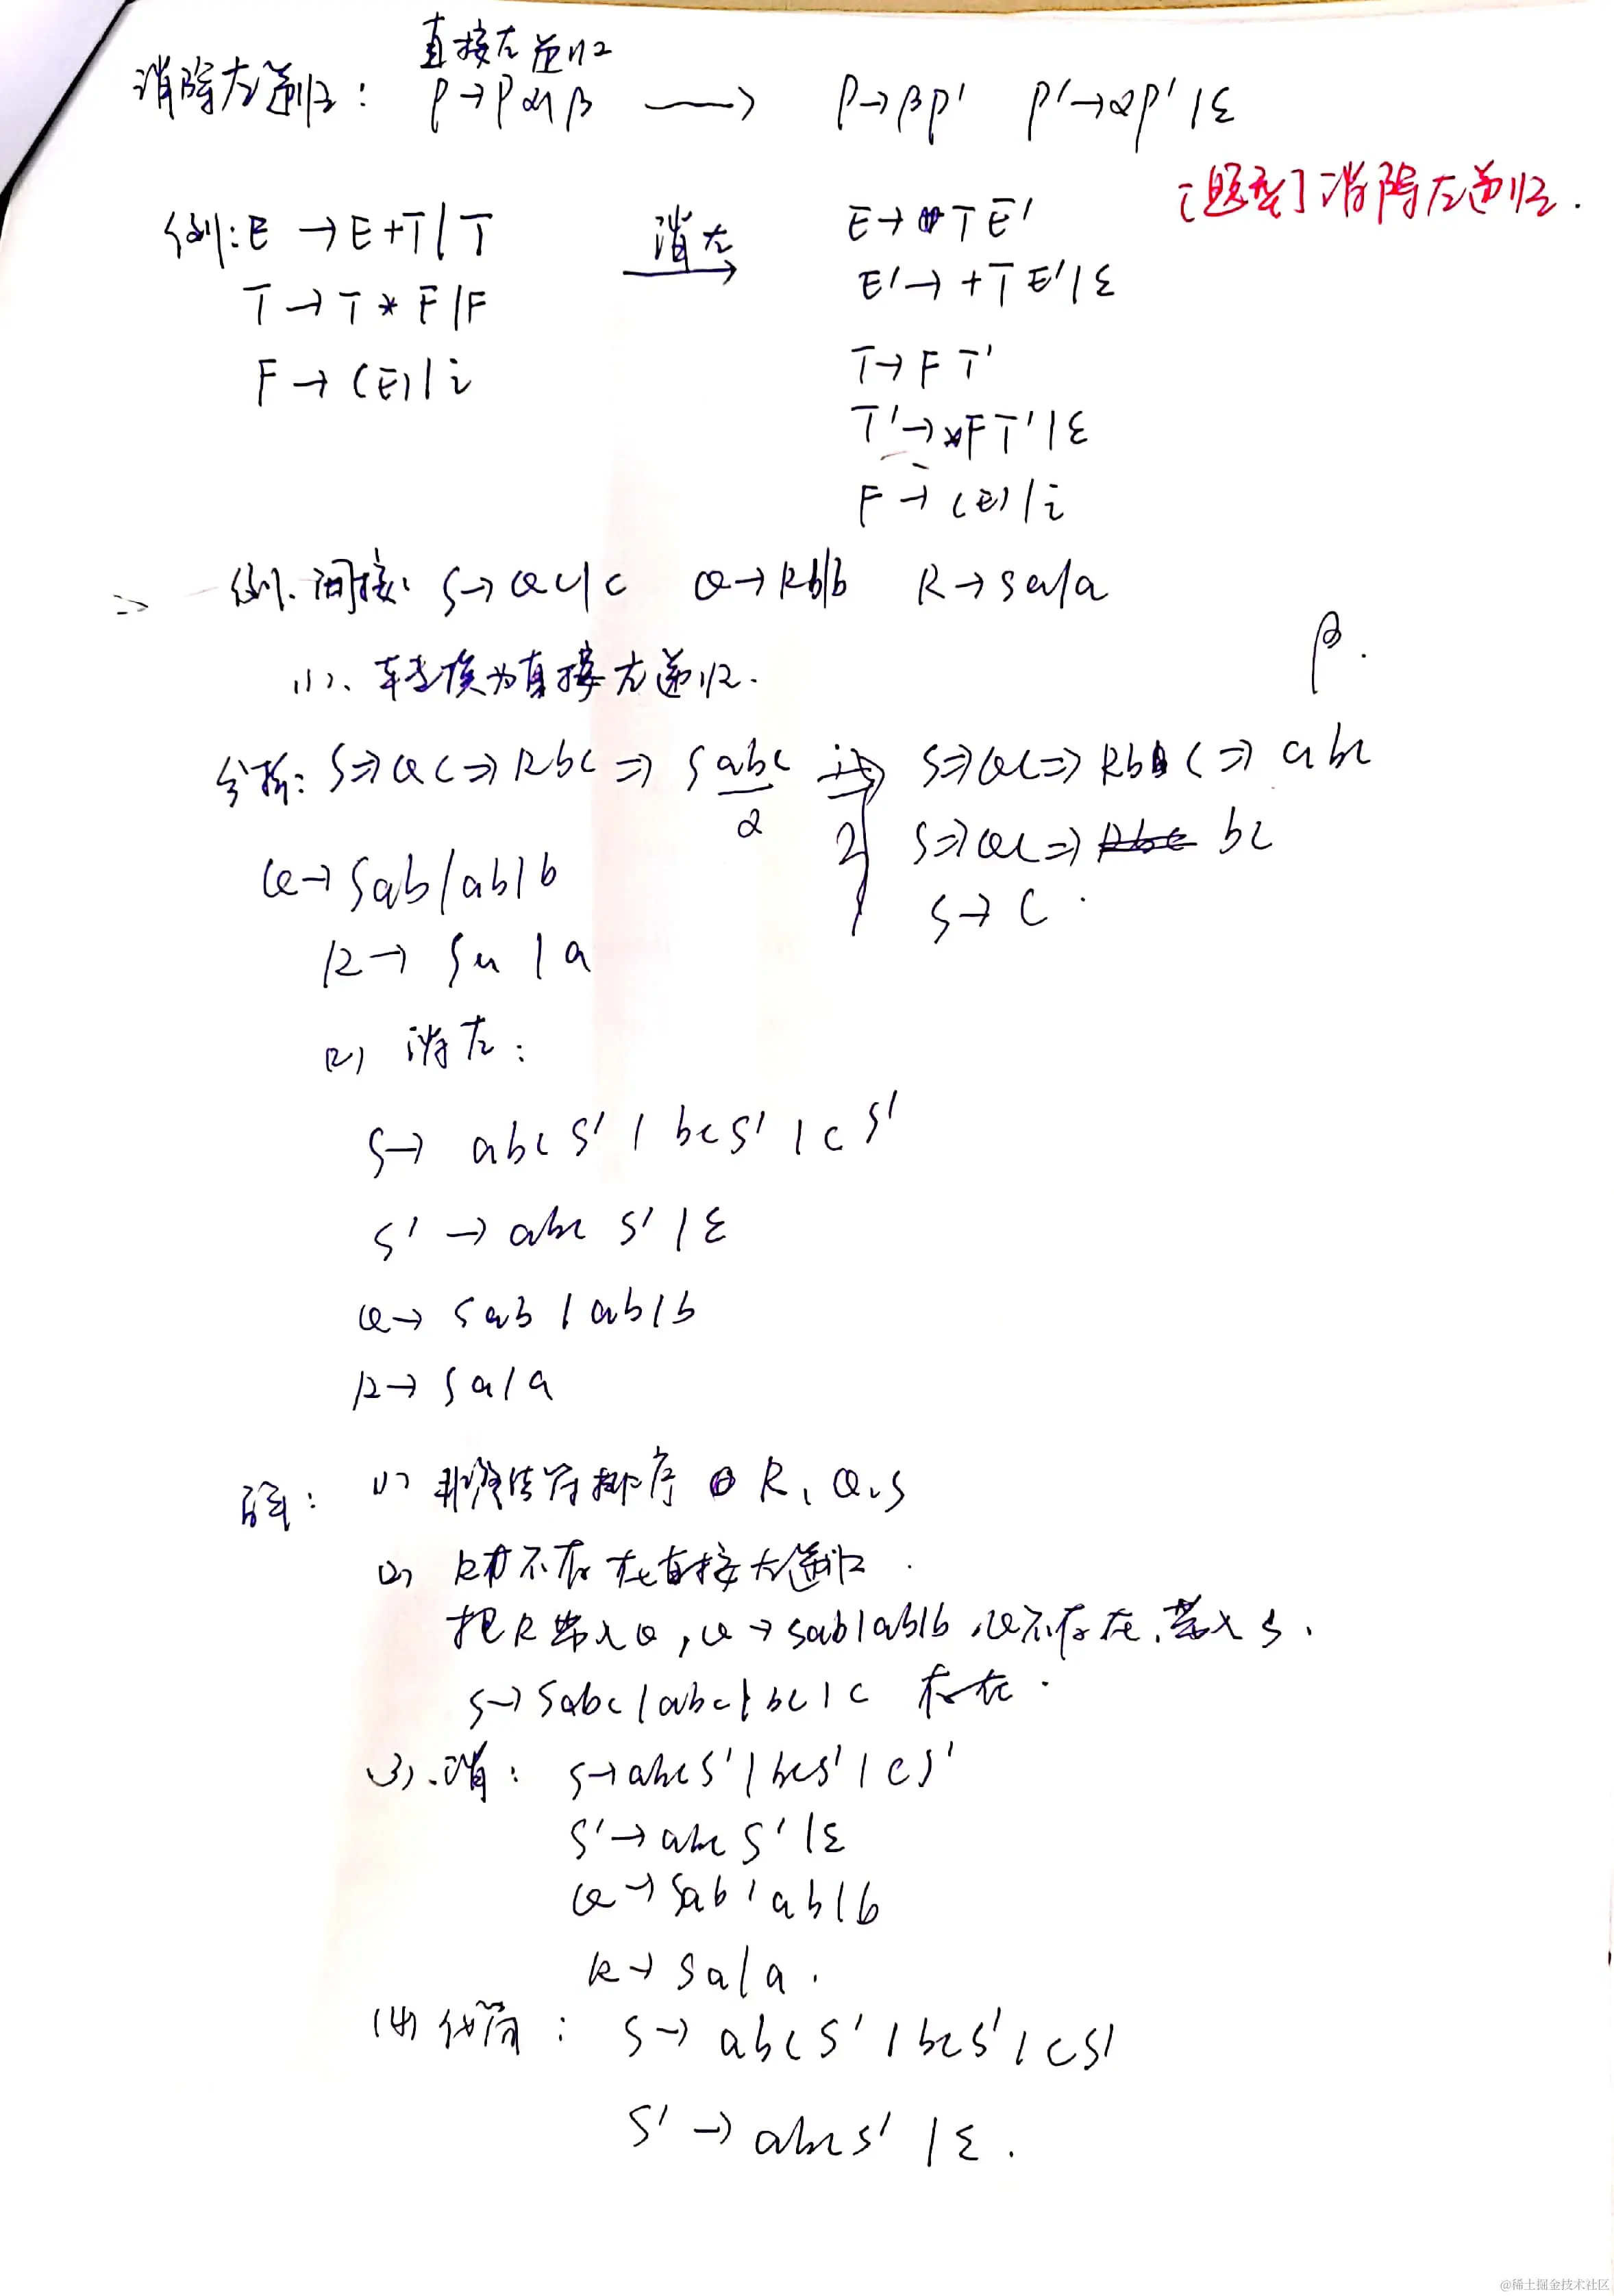 直接左递归
消除左递归: P→Pα|β ⟶ P→βP' P'→αP'|ε
[题型]消除左递归.
例: E→E+T|T 消左 E→TE'
E'→+TE'|ε
T→T*F|F
F→(E)|i
T→FT'
T'→*FT'|ε
F→(E)|i
例. 间接: S→Qc|c Q→Rb|b R→Sa|a
β.
(1)、转换为直接左递归.
分析: S⇒Qc⇒Rbc⇒Sabc S⇒Qc⇒Rbc⇒abc
α
S⇒Qc⇒bc
Q→Sab|ab|b
S→c.
R→Sa|a
(2) 消左:
S→abcS'|bcS'|cS'
S'→abcS'|ε
Q→Sab|ab|b
R→Sa|a
解: (1) 非终结符排序 R、Q、S
(2) R不存在直接左递归.
把R带入Q, Q→Sab|ab|b, Q不存在, 带入S.
S→Sabc|abc|bc|c 存在.
(3).消: S→abcS'|bcS'|cS'
S'→abcS'|ε
Q→Sab|ab|b
R→Sa|a.
(4)化简: S→abcS'|bcS'|cS'
S'→abcS'|ε.
@稀土掘金技术社区